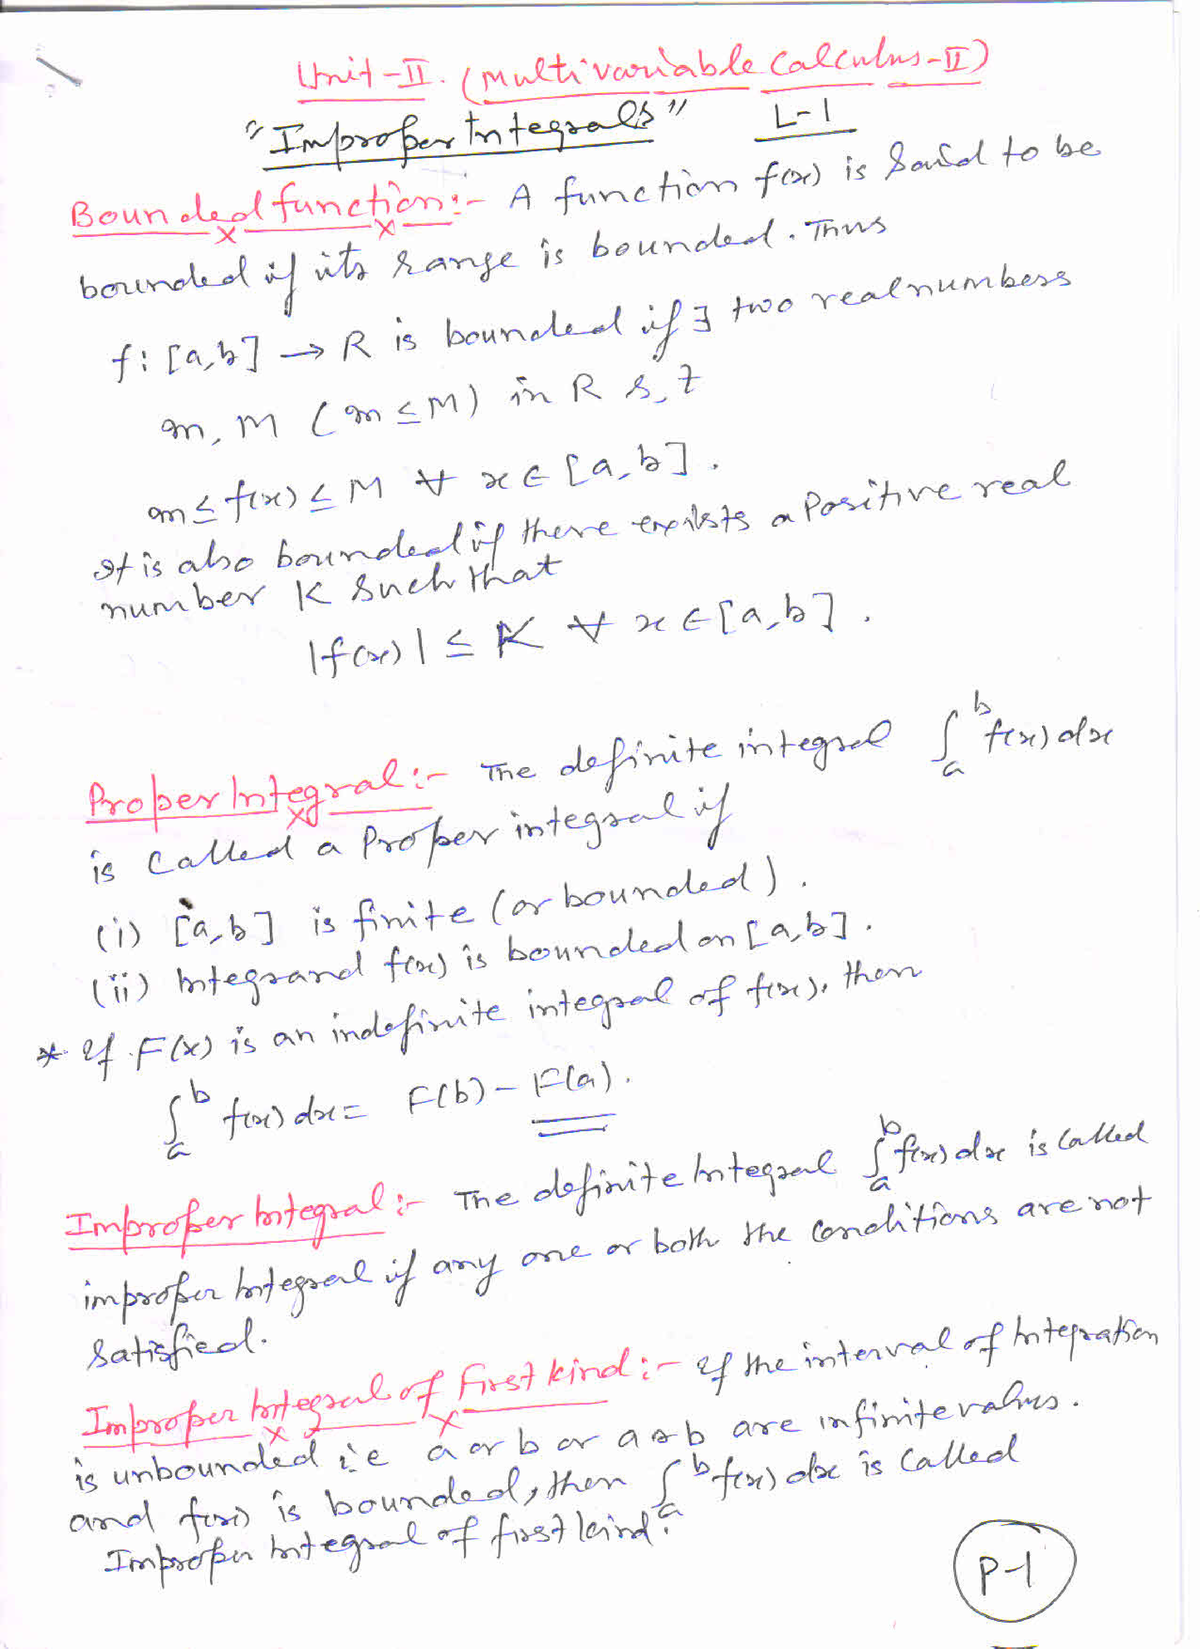 Unit-II. (Multivariable Calculus-II)
"Improper Integrals" L-1
Bounded function:- A function f(x) is Said to be
bounded if its range is bounded. Thus
f: [a,b] → R is bounded if ∃ two real numbers
m, M (m ≤ M) in R s.t
m ≤ f(x) ≤ M ∀ x ∈ [a,b].
It is also bounded if there exists a Positive real
number K Such that
|f(x)| ≤ K ∀ x ∈ [a,b].
Proper Integral:- The definite integral ∫_a^b f(x) dx
is Called a Proper integral if
(i) [a,b] is finite (or bounded).
(ii) Integrand f(x) is bounded on [a,b].
* If F(x) is an indefinite integral of f(x), then
∫_a^b f(x) dx = F(b) - F(a).
Improper Integral:- The definite Integral ∫_a^b f(x) dx is Called
improper Integral if any one or both the Conditions are not
Satisfied.
Improper Integral of First kind:- If the interval of Integration
is unbounded i.e a or b or a & b are infinite values.
and f(x) is bounded, then ∫_a^b f(x) dx is Called
Improper Integral of first kind.
P-1